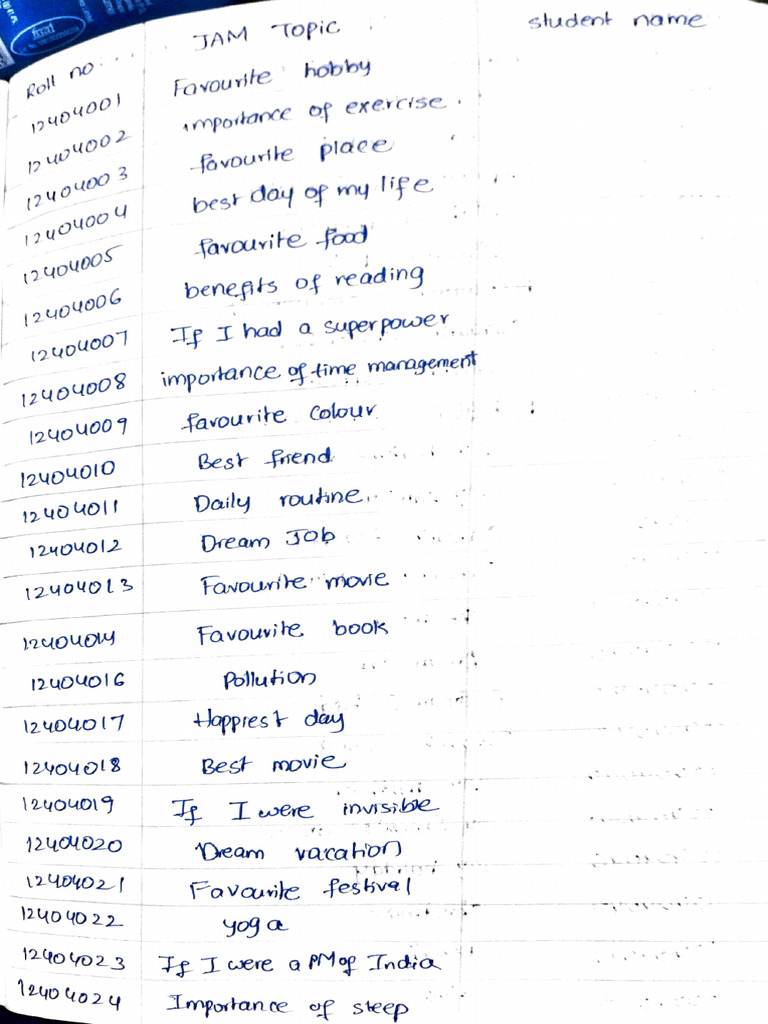 Roll no JAM Topic student name
12404001 Favourite hobby
12404002 importance of exercise
12404003 favourite place
12404004 best day of my life
12404005 favourite food
12404006 benefits of reading
12404007 If I had a superpower
12404008 importance of time management
12404009 favourite colour
12404010 Best friend
12404011 Daily routine
12404012 Dream Job
12404013 Favourite movie
12404014 Favourite book
12404016 Pollution
12404017 Happiest day
12404018 Best movie
12404019 If I were invisible
12404020 Dream vacation
12404021 Favourite festival
12404022 yoga
12404023 If I were a PM of India
12404024 Importance of sleep